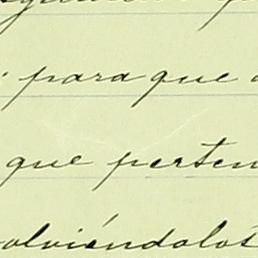 para que
que perten
olviéndolos